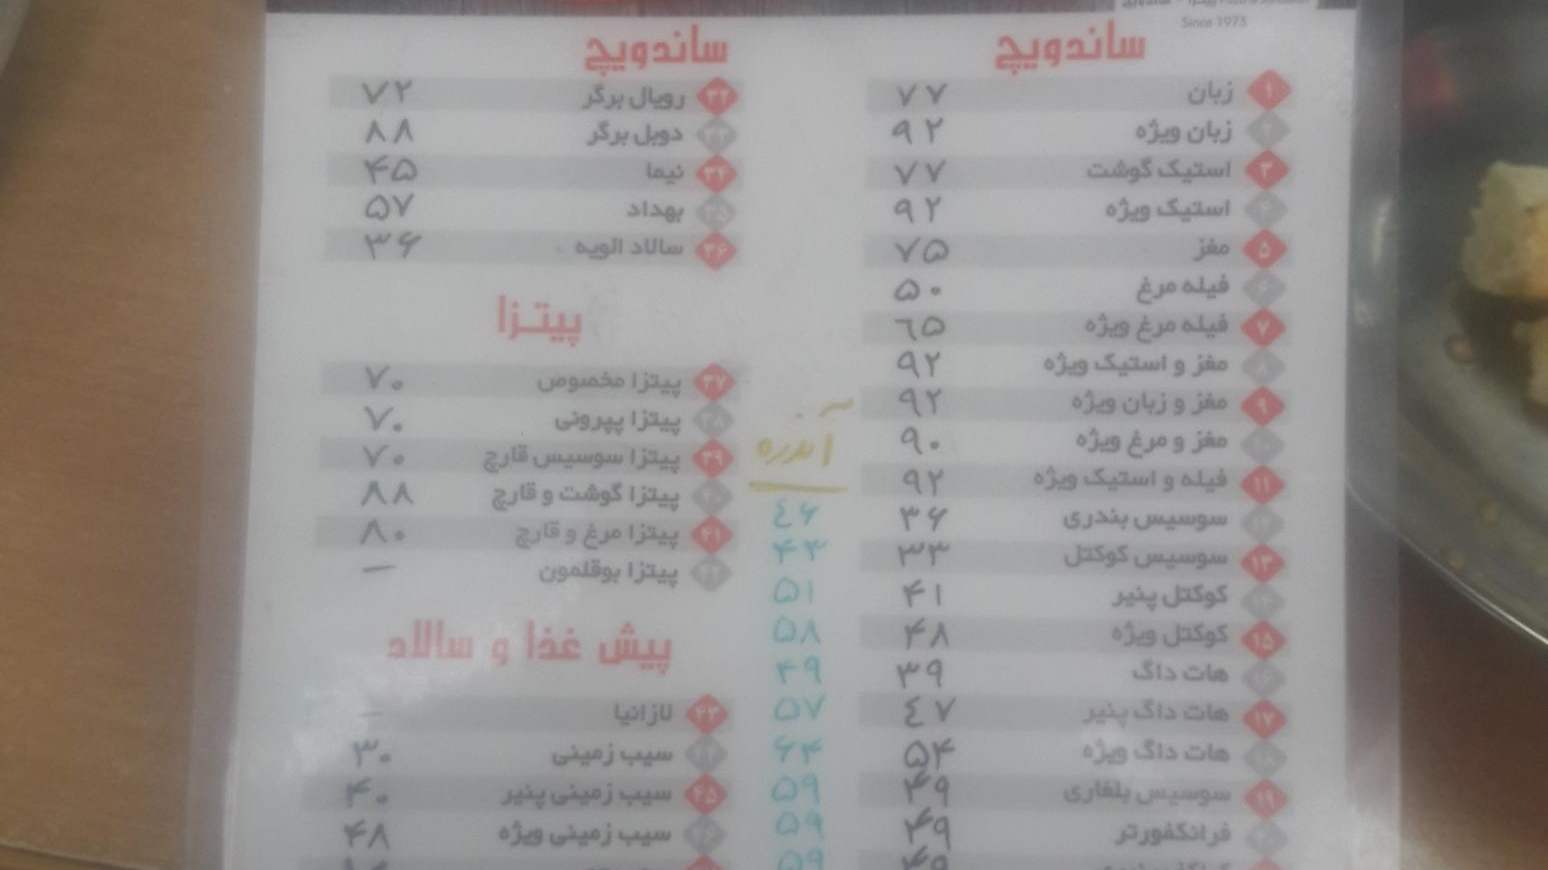 Since 1973
ساندویچ
۱ زبان ۷۷
۲ زبان ویژه ۹۲
۳ استیک گوشت ۷۷
۴ استیک ویژه ۹۲
۵ مغز ۷۵
۶ فیله مرغ ۵۰
۷ فیله مرغ ویژه ۶۵
۸ مغز و استیک ویژه ۹۲
۹ مغز و زبان ویژه ۹۲
۱۰ مغز و مرغ ویژه ۹۰
۱۱ فیله و استیک ویژه ۹۲
آندره
۱۲ سوسیس بندری ۳۶ ۴۶
۱۳ سوسیس کوکتل ۳۳ ۴۳
۱۴ کوکتل پنیر ۴۱ ۵۱
۱۵ کوکتل ویژه ۴۸ ۵۸
۱۶ هات داگ ۳۹ ۴۹
۱۷ هات داگ پنیر ۴۷ ۵۷
۱۸ هات داگ ویژه ۵۴ ۶۴
۱۹ سوسیس بلغاری ۴۹ ۵۹
۲۰ فرانکفورتر ۴۹ ۵۹
۴۹ ۵۹
ساندویچ
۳۲ رویال برگر ۷۲
۳۳ دوبل برگر ۸۸
۳۴ نیما ۴۵
۳۵ بهداد ۵۷
۳۶ سالاد الویه ۳۶
پیتزا
۳۷ پیتزا مخصوص ۷۰
۳۸ پیتزا پپرونی ۷۰
۳۹ پیتزا سوسیس قارچ ۷۰
۴۰ پیتزا گوشت و قارچ ۸۸
۴۱ پیتزا مرغ و قارچ ۸۰
۴۲ پیتزا بوقلمون —
پیش غذا و سالاد
۴۳ لازانیا —
۴۴ سیب زمینی ۳۰
۴۵ سیب زمینی پنیر ۴۰
۴۶ سیب زمینی ویژه ۴۸